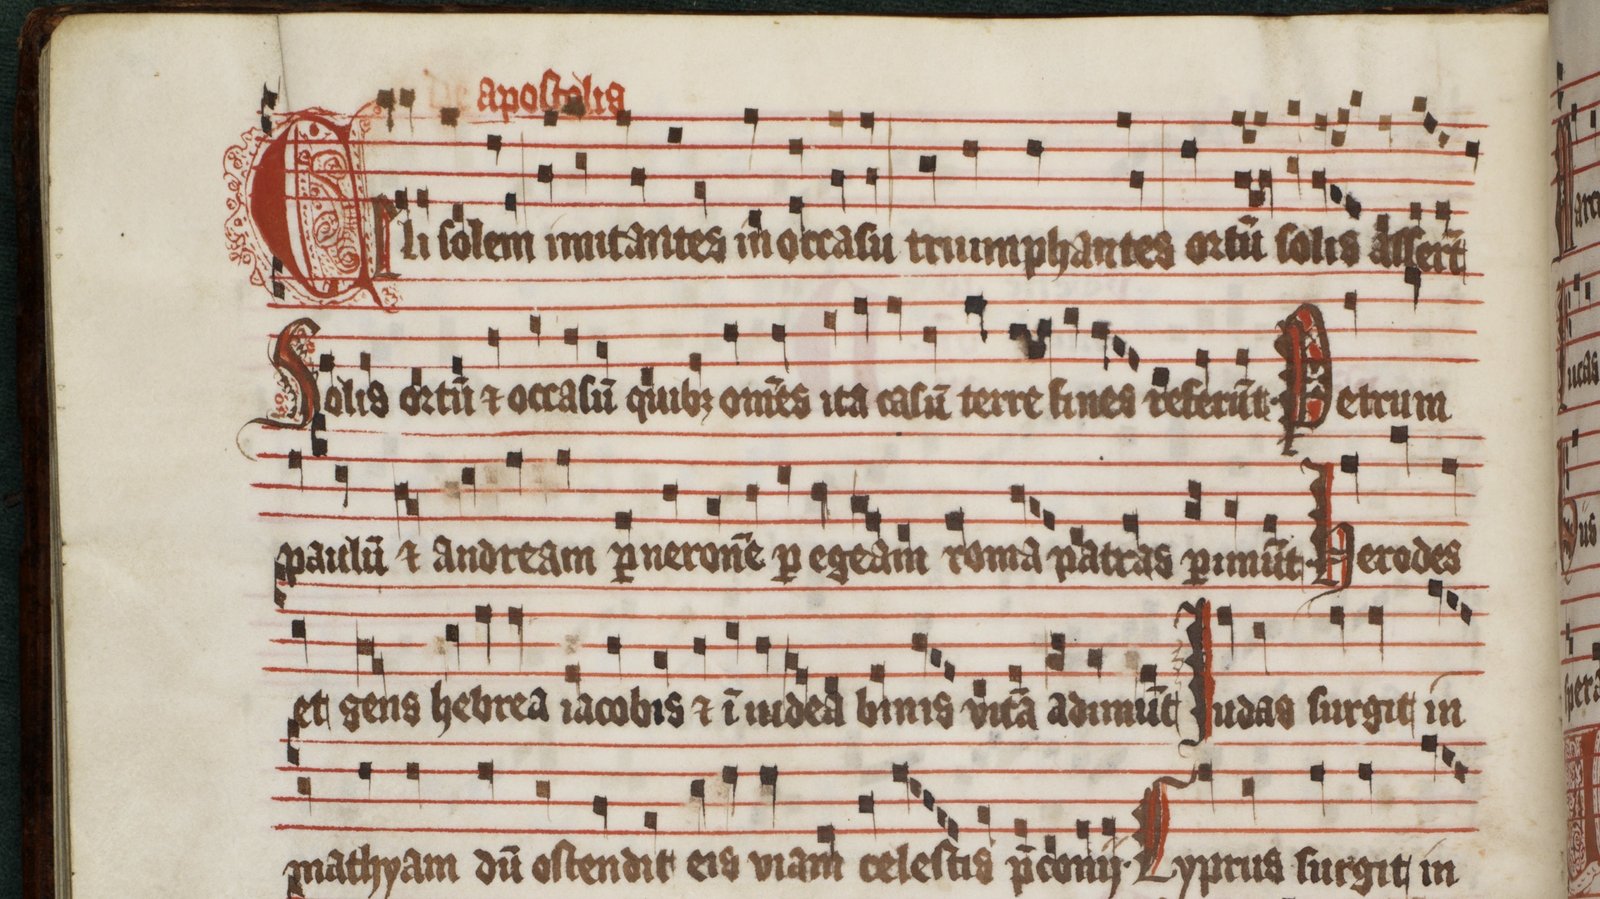 de apostolis
Celi solem imitantes in occasu triumphantes ortū solis asserūt
Solis ortū ⁊ occasū quibꝫ om̄es ita casū terre fines referūt. Petrum
paulū ⁊ andream ꝑ neronē ꝑ egeam roma patras ꝑimūt Herodes
et gens hebrea iacobis ⁊ ī iudea binis vitā adimūt Iudas surgit in
mathyam dū ostendit eis viam celestis p̄conij. Cyprus surgit in